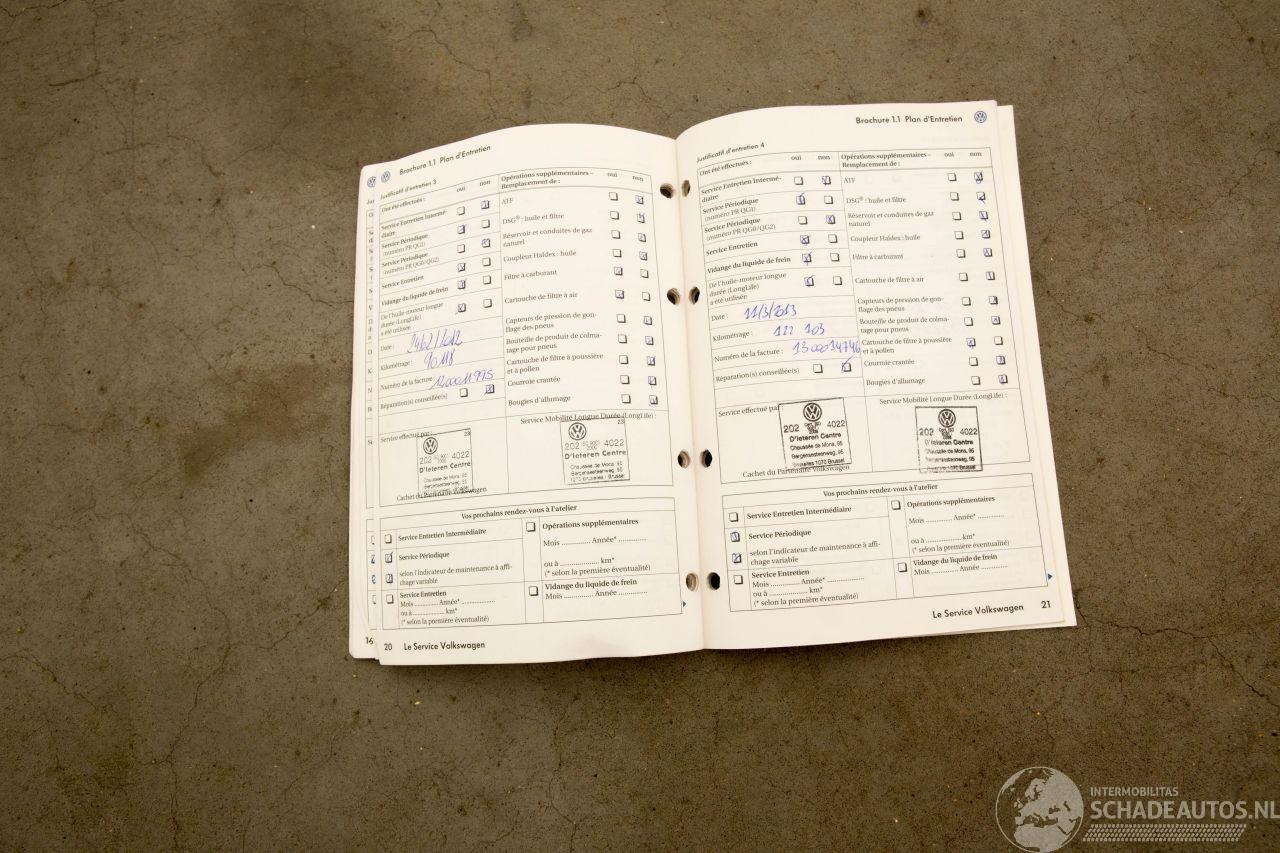 Brochure 1.1 Plan d'Entretien
Justificatif d'entretien 3
Ont été effectués : oui non
Service Entretien Intermé-
diaire
Service Périodique
(numéro PR QG1)
Service Périodique
(numéro PR QG0/QG2)
Service Entretien
Vidange du liquide de frein
De l'huile-moteur longue
durée (LongLife)
a été utilisée
Date :
Kilométrage : 90118
Numéro de la facture : 1200011995
Réparation(s) conseillée(s)
Opérations supplémentaires – oui non
Remplacement de :
ATF
DSG® : huile et filtre
Réservoir et conduites de gaz
naturel
Coupleur Haldex : huile
Filtre à carburant
Cartouche de filtre à air
Capteurs de pression de gon-
flage des pneus
Bouteille de produit de colma-
tage pour pneus
Cartouche de filtre à poussière
et à pollen
Courroie crantée
Bougies d'allumage
Service effectué par :
23
202 4022
D'Ieteren Centre
Chaussée de Mons, 95
Bergensesteenweg, 95
Cachet du Partenaire Volkswagen
Service Mobilité Longue Durée (LongLife) :
23
202 4022
D'Ieteren Centre
Chaussée de Mons, 95
Bergensesteenweg, 95
Vos prochains rendez-vous à l'atelier
Service Entretien Intermédiaire
Service Périodique
selon l'indicateur de maintenance à affi-
chage variable
Service Entretien
Mois ........... Année* ................
ou à ..................... km*
(* selon la première éventualité)
Opérations supplémentaires
Mois .............. Année* ..............
ou à ..................... km*
(* selon la première éventualité)
Vidange du liquide de frein
Mois .............. Année ..............
16
20 Le Service Volkswagen
Brochure 1.1 Plan d'Entretien
Justificatif d'entretien 4
Ont été effectués : oui non
Service Entretien Intermé-
diaire
Service Périodique
(numéro PR QG1)
Service Périodique
(numéro PR QG0/QG2)
Service Entretien
Vidange du liquide de frein
De l'huile-moteur longue
durée (LongLife)
a été utilisée
Date : 11/3/2013
Kilométrage : 122 103
Numéro de la facture : 1300014746
Réparation(s) conseillée(s)
Opérations supplémentaires – oui non
Remplacement de :
ATF
DSG® : huile et filtre
Réservoir et conduites de gaz
naturel
Coupleur Haldex : huile
Filtre à carburant
Cartouche de filtre à air
Capteurs de pression de gon-
flage des pneus
Bouteille de produit de colma-
tage pour pneus
Cartouche de filtre à poussière
et à pollen
Courroie crantée
Bougies d'allumage
Service effectué par :
202 4022
D'Ieteren Centre
Chaussée de Mons, 95
Bergensesteenweg, 95
Bruxelles 1070 Brussel
Cachet du Partenaire Volkswagen
Service Mobilité Longue Durée (LongLife) :
202 4022
D'Ieteren Centre
Chaussée de Mons, 95
Bergensesteenweg, 95
Vos prochains rendez-vous à l'atelier
Service Entretien Intermédiaire
Service Périodique
selon l'indicateur de maintenance à affi-
chage variable
Service Entretien
Mois ........... Année* ................
ou à ..................... km*
(* selon la première éventualité)
Opérations supplémentaires
Mois .............. Année* ..............
ou à ..................... km*
(* selon la première éventualité)
Vidange du liquide de frein
Mois .............. Année ..............
Le Service Volkswagen 21
INTERMOBILITAS
SCHADEAUTOS.NL